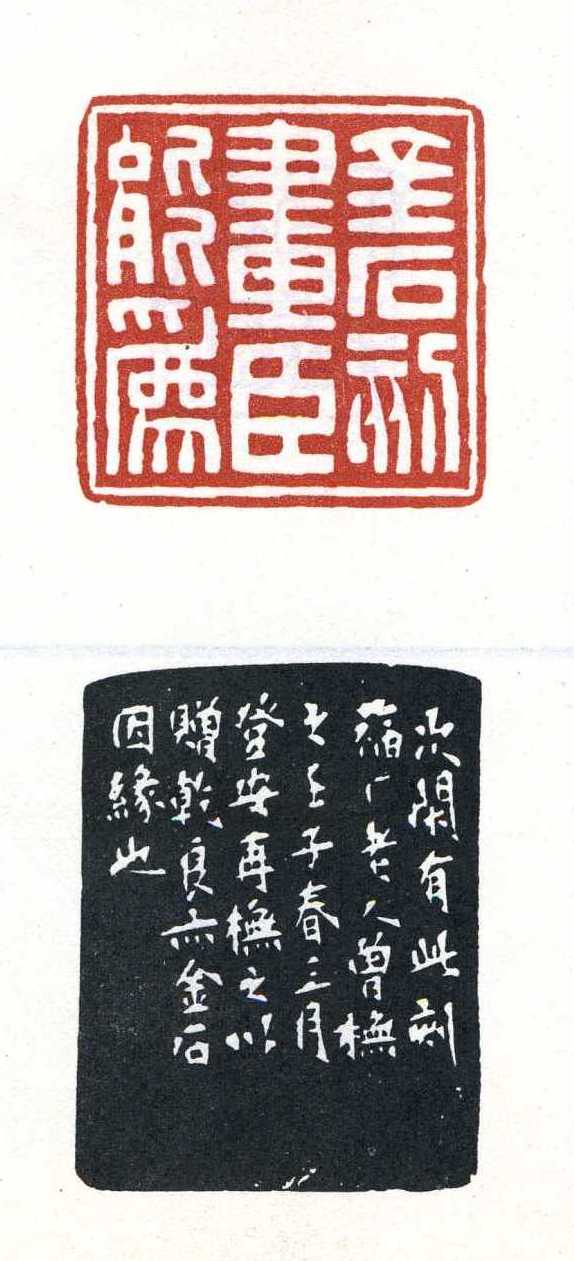 金石刻
畫臣
能為
次閑有此刻
福厂老人曾橅
之壬子春三月
登安再橅之以
贈乾良亦金石
因緣也